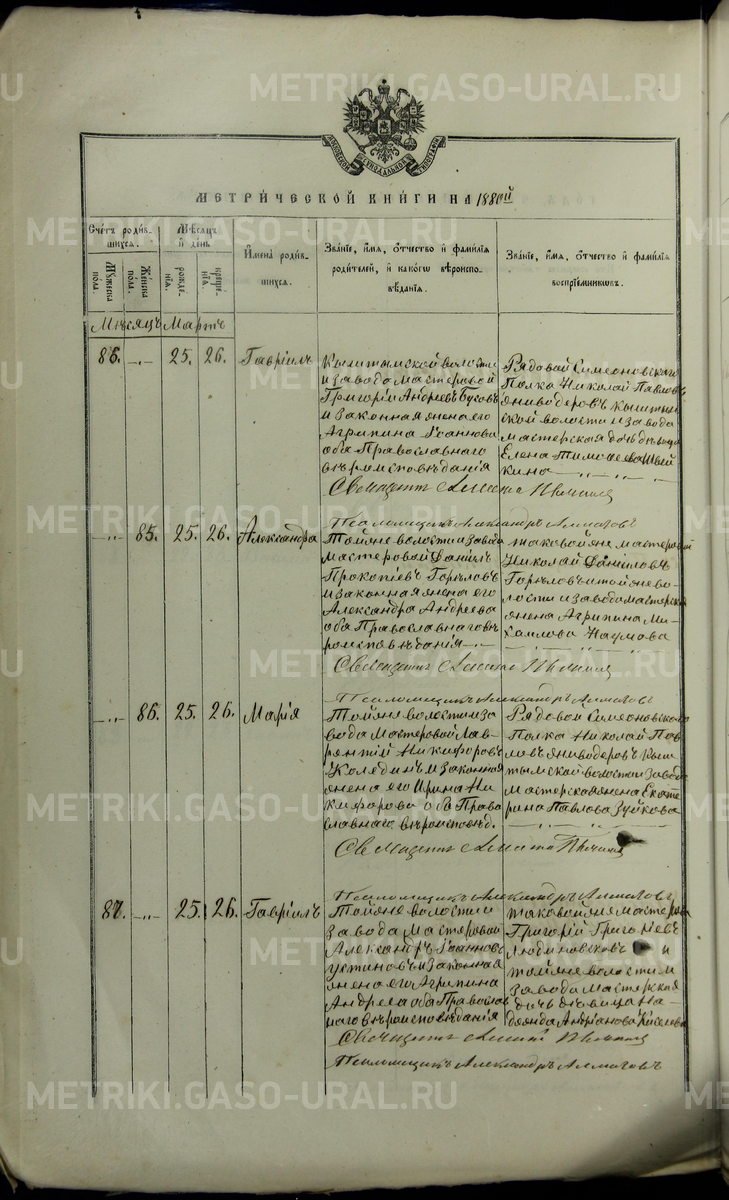 METRIKI.GASO-URAL.RU
МЕТРИ́ЧЕСКОЙ КНИ́ГИ НА 188
Счетъ роди́в-
шихся.
Му́жеска
по́ла.
Же́нска
по́ла.
Мѣсяцъ
и день
рожде́-
нія.
креще́-
нія.
Имена̀ роди́в-
шихся.
Зва́ніе, имя, отчество и фами́лія
роди́телей, и како́гѡ вѣроиспо-
вѣ́данія.
Зва́ніе, имя, отчество и фами́лія
воспріе́мниковъ.
Мѣсяцъ Мартъ
86. -„- 25. 26. Гавріилъ
Кыштымской волости
и завода мастеровой
Григорій Андреевъ
и законная жена его
Агрипина Іоаннова
оба Православнаго
вѣроисповѣданія
Рядовой Симеоновскаго
Полка Николай Павловъ
Живодеровъ кыштым-
ской волости и завода
мастерская дочь дѣвица
Елена Тимофеева Швей
кина
Священникъ
Псаломщикъ Александръ
-„- 85. 25. 26. Александра
Той же волости и завода
мастеровой Даніилъ
Прокопіевъ Горѣловъ
и законная жена его
Александра Андреева
оба Православнаго вѣ-
роисповѣданія
таковой же мастеровой
Николай Даніиловъ
Горѣловъ и той же во-
лости и завода мастерская
жена Агрипина Ми-
хаилова Наумова
Священникъ
Псаломщикъ Александръ
-„- 86. 25. 26. Марія
Той же волости и за
вода мастеровой Лав-
рентій Никифоровъ
и законная
жена его Ирина Ни
кифорова оба Право
славнаго вѣроисповѣд.
Рядовой Симеоновскаго
Полка Николай Пав
ловъ Живодеровъ Кыш
тымской волости и завода
мастерская жена Екате
рина Павлова Зуйкова
Священникъ
Псаломщикъ Александръ
87. -„- 25. 26. Гавріилъ
Той же волости и
завода мастеровой
Александръ Іоанновъ
Устиновъ и законная
жена его Агрипина
Андреева оба Православ
наго вѣроисповѣданія
таковой же мастеров
Григорій Григорьевъ
и
той же волости и
завода мастерская
дочь дѣвица На-
дежда Андріанова Киселева
Священникъ
Псаломщикъ Александръ